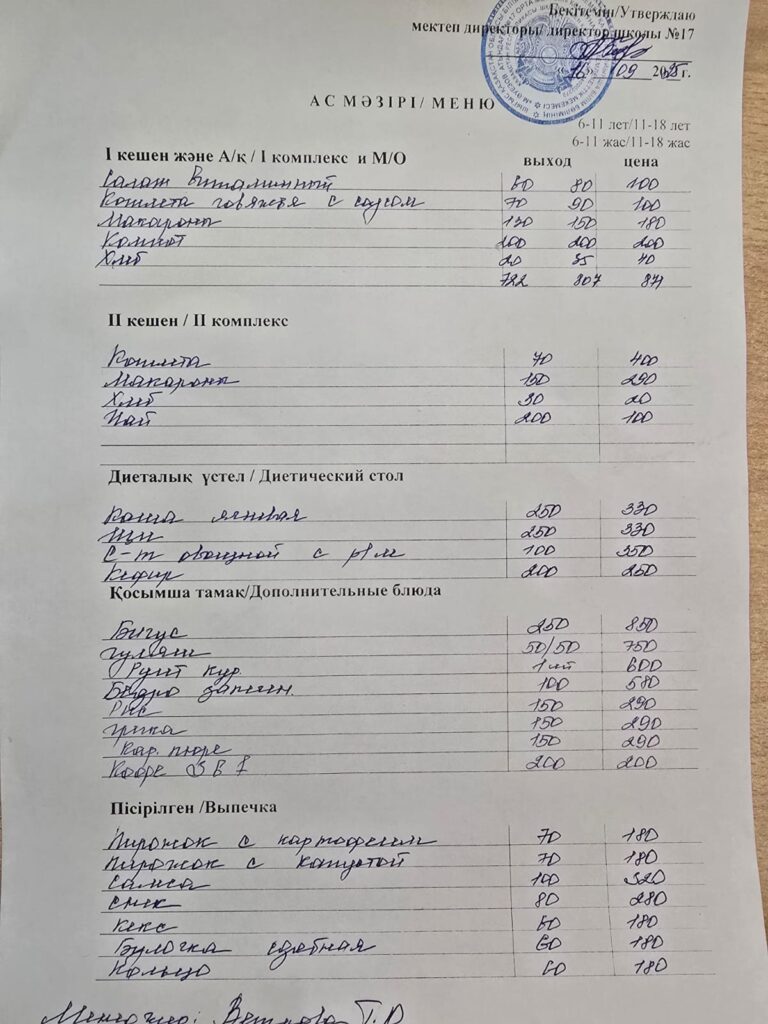 Бекітемін/Утверждаю
мектеп директоры/ директор школы №17
"16" 09 2025 г.
АС МӘЗІРІ/ МЕНЮ
6-11 лет/11-18 лет
6-11 жас/11-18 жас
I кешен және А/қ / I комплекс и М/О выход цена
Салат витаминный 60 80 100
Котлета говяжья с соусом 70 90 100
Макароны 130 150 180
Компот 200 200 200
Хлеб 20 35 40
722 807 871
II кешен / II комплекс
Котлета 70 400
Макароны 150 290
Хлеб 30 20
Чай 200 100
Диеталық үстел / Диетический стол
Каша ячневая 250 330
Щи 250 330
С-т овощной с р/м 100 350
Кефир 200 250
Қосымша тамақ/Дополнительные блюда
Бигус 250 850
гуляш 50/50 750
Рулет кур. 1 шт 600
Бедро запеч. 100 580
Рис 150 290
гречка 150 290
Кар. пюре 150 290
Кофе 3 в 1 200 200
Пісірілген /Выпечка
Пирожок с картофелем 70 180
Пирожок с капустой 70 180
Самса 100 320
Снек 80 280
Кекс 60 180
Булочка сдобная 60 180
Кольцо 60 180
Менеджер: Т.В